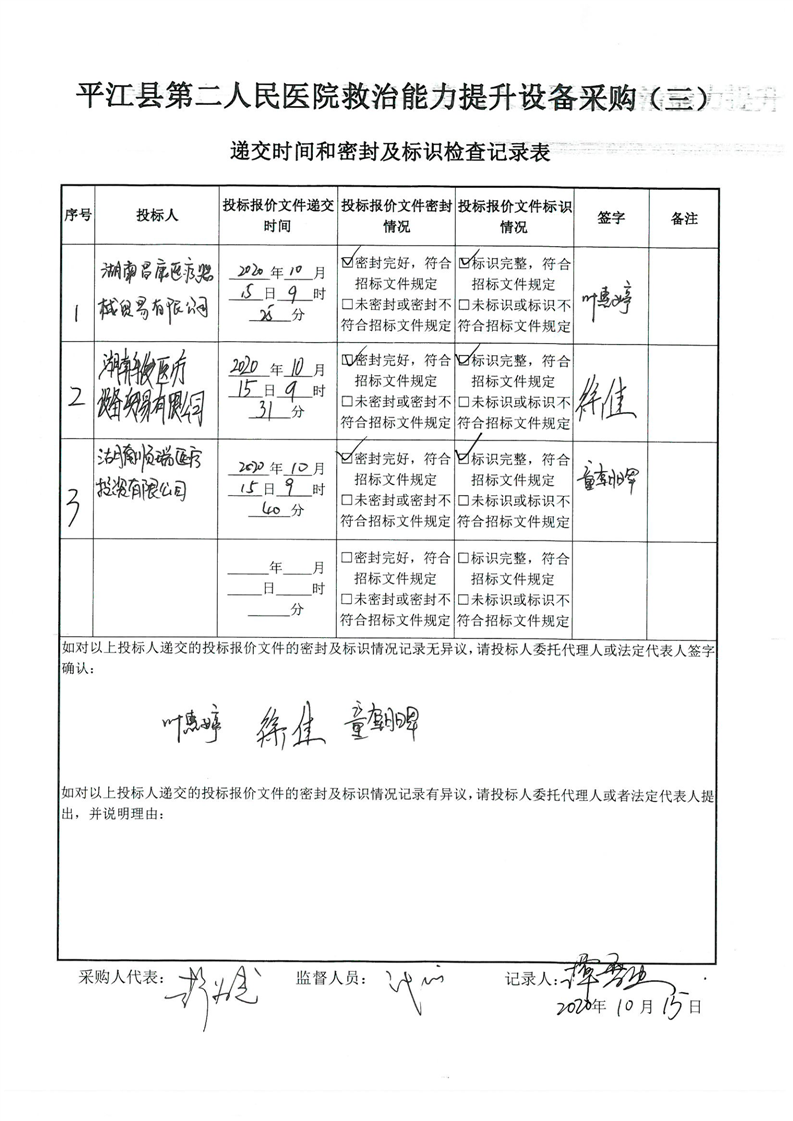 平江县第二人民医院救治能力提升设备采购（三）
递交时间和密封及标识检查记录表
序号 投标人 投标报价文件递交时间 投标报价文件密封情况 投标报价文件标识情况 签字 备注
1 湖南昌康医疗器械贸易有限公司 2020年10月15日9时25分 ☑密封完好，符合招标文件规定 □未密封或密封不符合招标文件规定 ☑标识完整，符合招标文件规定 □未标识或标识不符合招标文件规定 叶惠婷
2 湖南 医疗设备贸易有限公司 2020年10月15日9时31分 ☑密封完好，符合招标文件规定 □未密封或密封不符合招标文件规定 ☑标识完整，符合招标文件规定 □未标识或标识不符合招标文件规定 徐佳
3 湖南顺瑞医疗投资有限公司 2020年10月15日9时40分 ☑密封完好，符合招标文件规定 □未密封或密封不符合招标文件规定 ☑标识完整，符合招标文件规定 □未标识或标识不符合招标文件规定 童
年 月 日 时 分 □密封完好，符合招标文件规定 □未密封或密封不符合招标文件规定 □标识完整，符合招标文件规定 □未标识或标识不符合招标文件规定
如对以上投标人递交的投标报价文件的密封及标识情况记录无异议，请投标人委托代理人或法定代表人签字
确认：
叶惠婷 徐佳 童
如对以上投标人递交的投标报价文件的密封及标识情况记录有异议，请投标人委托代理人或者法定代表人提
出，并说明理由：
采购人代表： 监督人员： 记录人：
2020年10月15日